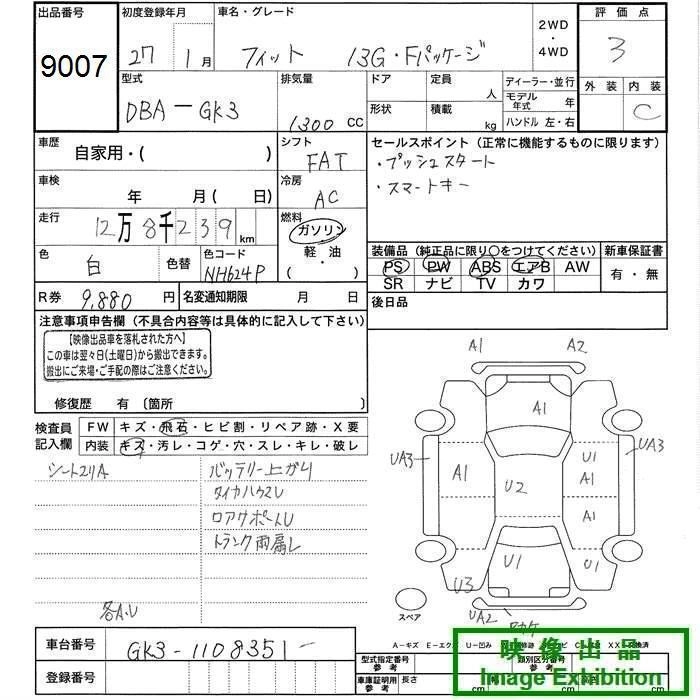 出品番号 初度登録年月 車名・グレード 2WD ・ 4WD 評価点
9007 27年 1月 フィット 13G・Fパッケージ 3
型式 排気量 ドア 定員 人 ディーラー・並行 外装 内装
DBA-GK3 1300 CC 形状 積載 kg モデル年式 年 C
ハンドル 左・右
車歴 自家用・( ) シフト FAT セールスポイント(正常に機能するものに限ります)
・プッシュスタート
・スマートキー
車検 年 月 ( 日) 冷房 AC
走行 12万8千239km 燃料 ガソリン・軽・油・( )
色 白 色替 色コード NH624P
装備品(純正品に限り○をつけてください) 新車保証書
PS PW ABS エアB AW 有・無
SR ナビ TV カワ
R券 9,880円 名変通知期限 月 日 後日品
注意事項申告欄(不具合内容等は具体的に記入して下さい)
【映像出品車を落札された方へ】
この車は翌々日(土曜日)から搬出できます。
搬出にご来場・ご手配の際はご注意ください。
修復歴 有〔箇所 〕
検査員記入欄 FW キズ・飛石・ヒビ割・リペア跡・X要
内装 キズ・汚レ・コゲ・穴・スレ・キレ・破レ
バッテリー上がり
タイヤハウスU
ロアサポートU
各A・U
A1 A2
A1
UA3 A1 U2 U1 A1 A1 UA3
U3 U1 U1
UA2
スペア
車台番号 GK3-1108351
登録番号
型式指定番号 参考 類別区分番号 参考
車庫証明用 参考 長さ cm cm cm
映像出品
Image Exhibition